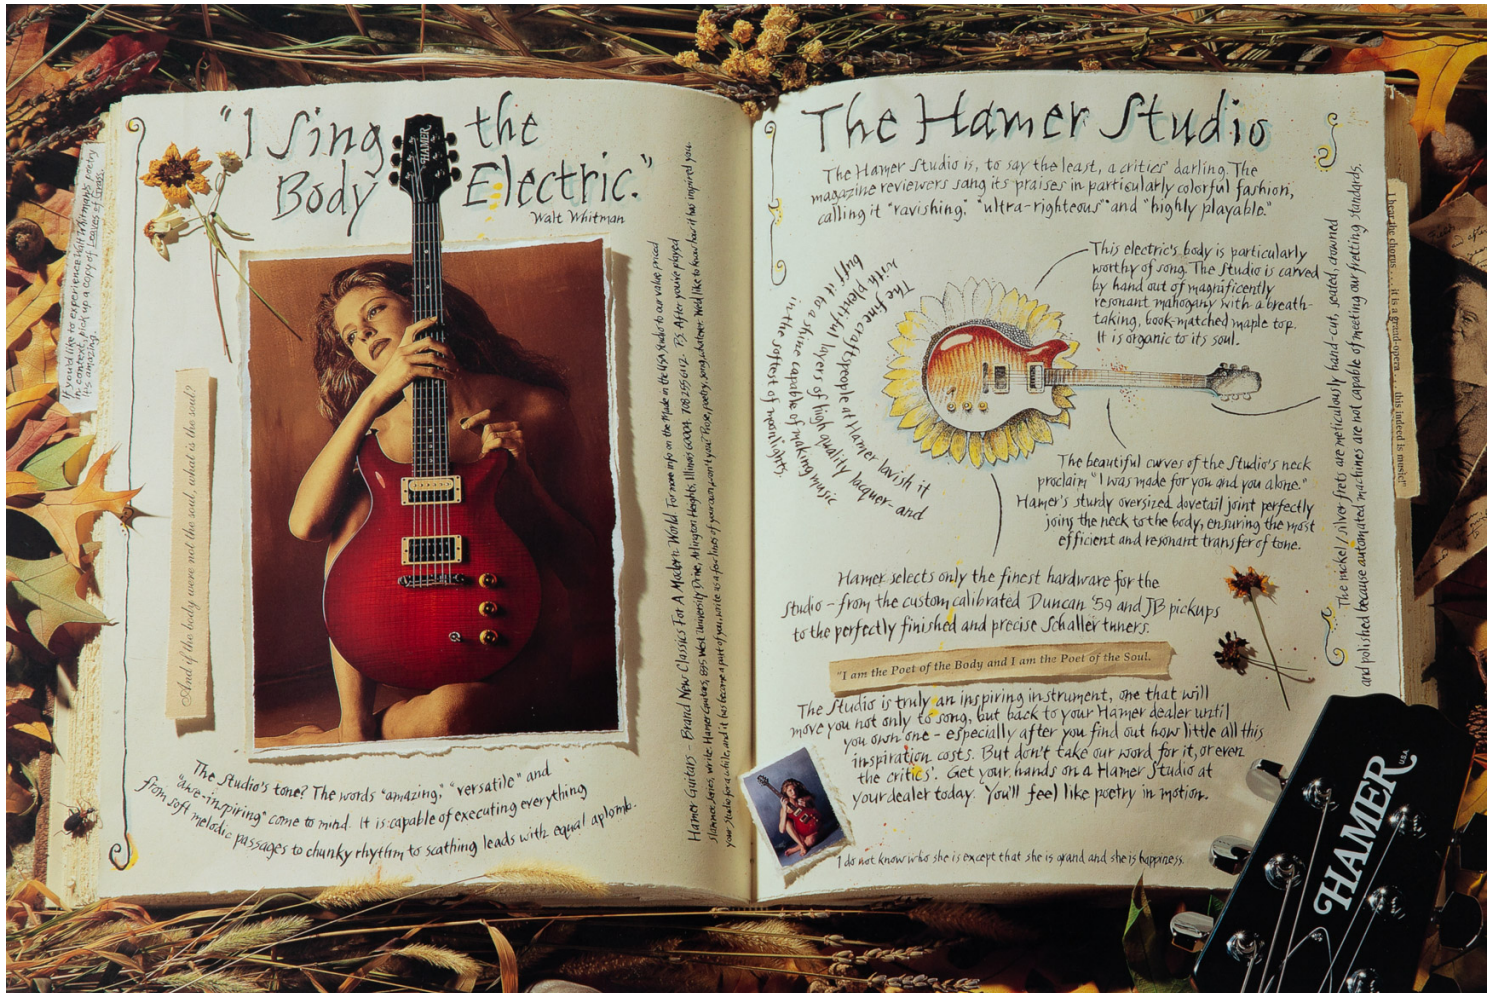 "I Sing the
Body Electric."
Walt Whitman
HAMER
If you'd like to experience Walt Whitman's poetry
in context, pick up a copy of Leaves of Grass.
It's amazing.
And if the body were not the soul, what is the soul?
The Studio's tone? The words "amazing," "versatile" and
"awe-inspiring" come to mind. It is capable of executing everything
from soft melodic passages to chunky rhythm to scathing leads with equal aplomb.
Hamer Guitars - Brand New Classics For A Modern World. For more info on the Made in the USA Studio to our value priced
Slammer Series, write: Hamer Guitars, 835 West University Drive, Arlington Heights, Illinois 60004. 708 255 6112. P.S. After you've played
your Studio for a while, and it has become a part of you, write us a few lines of your own, won't you? Prose, poetry, song, whatever. We'd like to know how it has inspired you.
The Hamer Studio
The Hamer Studio is, to say the least, a critics' darling. The
magazine reviewers sang its praises in particularly colorful fashion,
calling it "ravishing," "ultra-righteous" and "highly playable."
This electric's body is particularly
worthy of song. The Studio is carved
by hand out of magnificently
resonant mahogany with a breath-
taking, book-matched maple top.
It is organic to its soul.
The fine craftspeople at Hamer lavish it
with plentiful layers of high quality lacquer-and
buff it to a shine capable of making music
in the softest of moonlights.
The beautiful curves of the Studio's neck
proclaim "I was made for you and you alone."
Hamer's sturdy oversized dovetail joint perfectly
joins the neck to the body, ensuring the most
efficient and resonant transfer of tone.
The nickel/silver frets are meticulously hand-cut, seated, crowned
and polished because automated machines are not capable of meeting our fretting standards.
I hear the chorus . . . it is a grand-opera . . . this indeed is music!
Hamer selects only the finest hardware for the
Studio - from the custom calibrated Duncan '59 and JB pickups
to the perfectly finished and precise Schaller tuners.
"I am the Poet of the Body and I am the Poet of the Soul.
The Studio is truly an inspiring instrument, one that will
move you not only to song, but back to your Hamer dealer until
you own one - especially after you find out how little all this
inspiration costs. But don't take our word for it, or even
the critics'. Get your hands on a Hamer Studio at
your dealer today. You'll feel like poetry in motion.
I do not know who she is except that she is grand and she is happiness.
HAMER USA